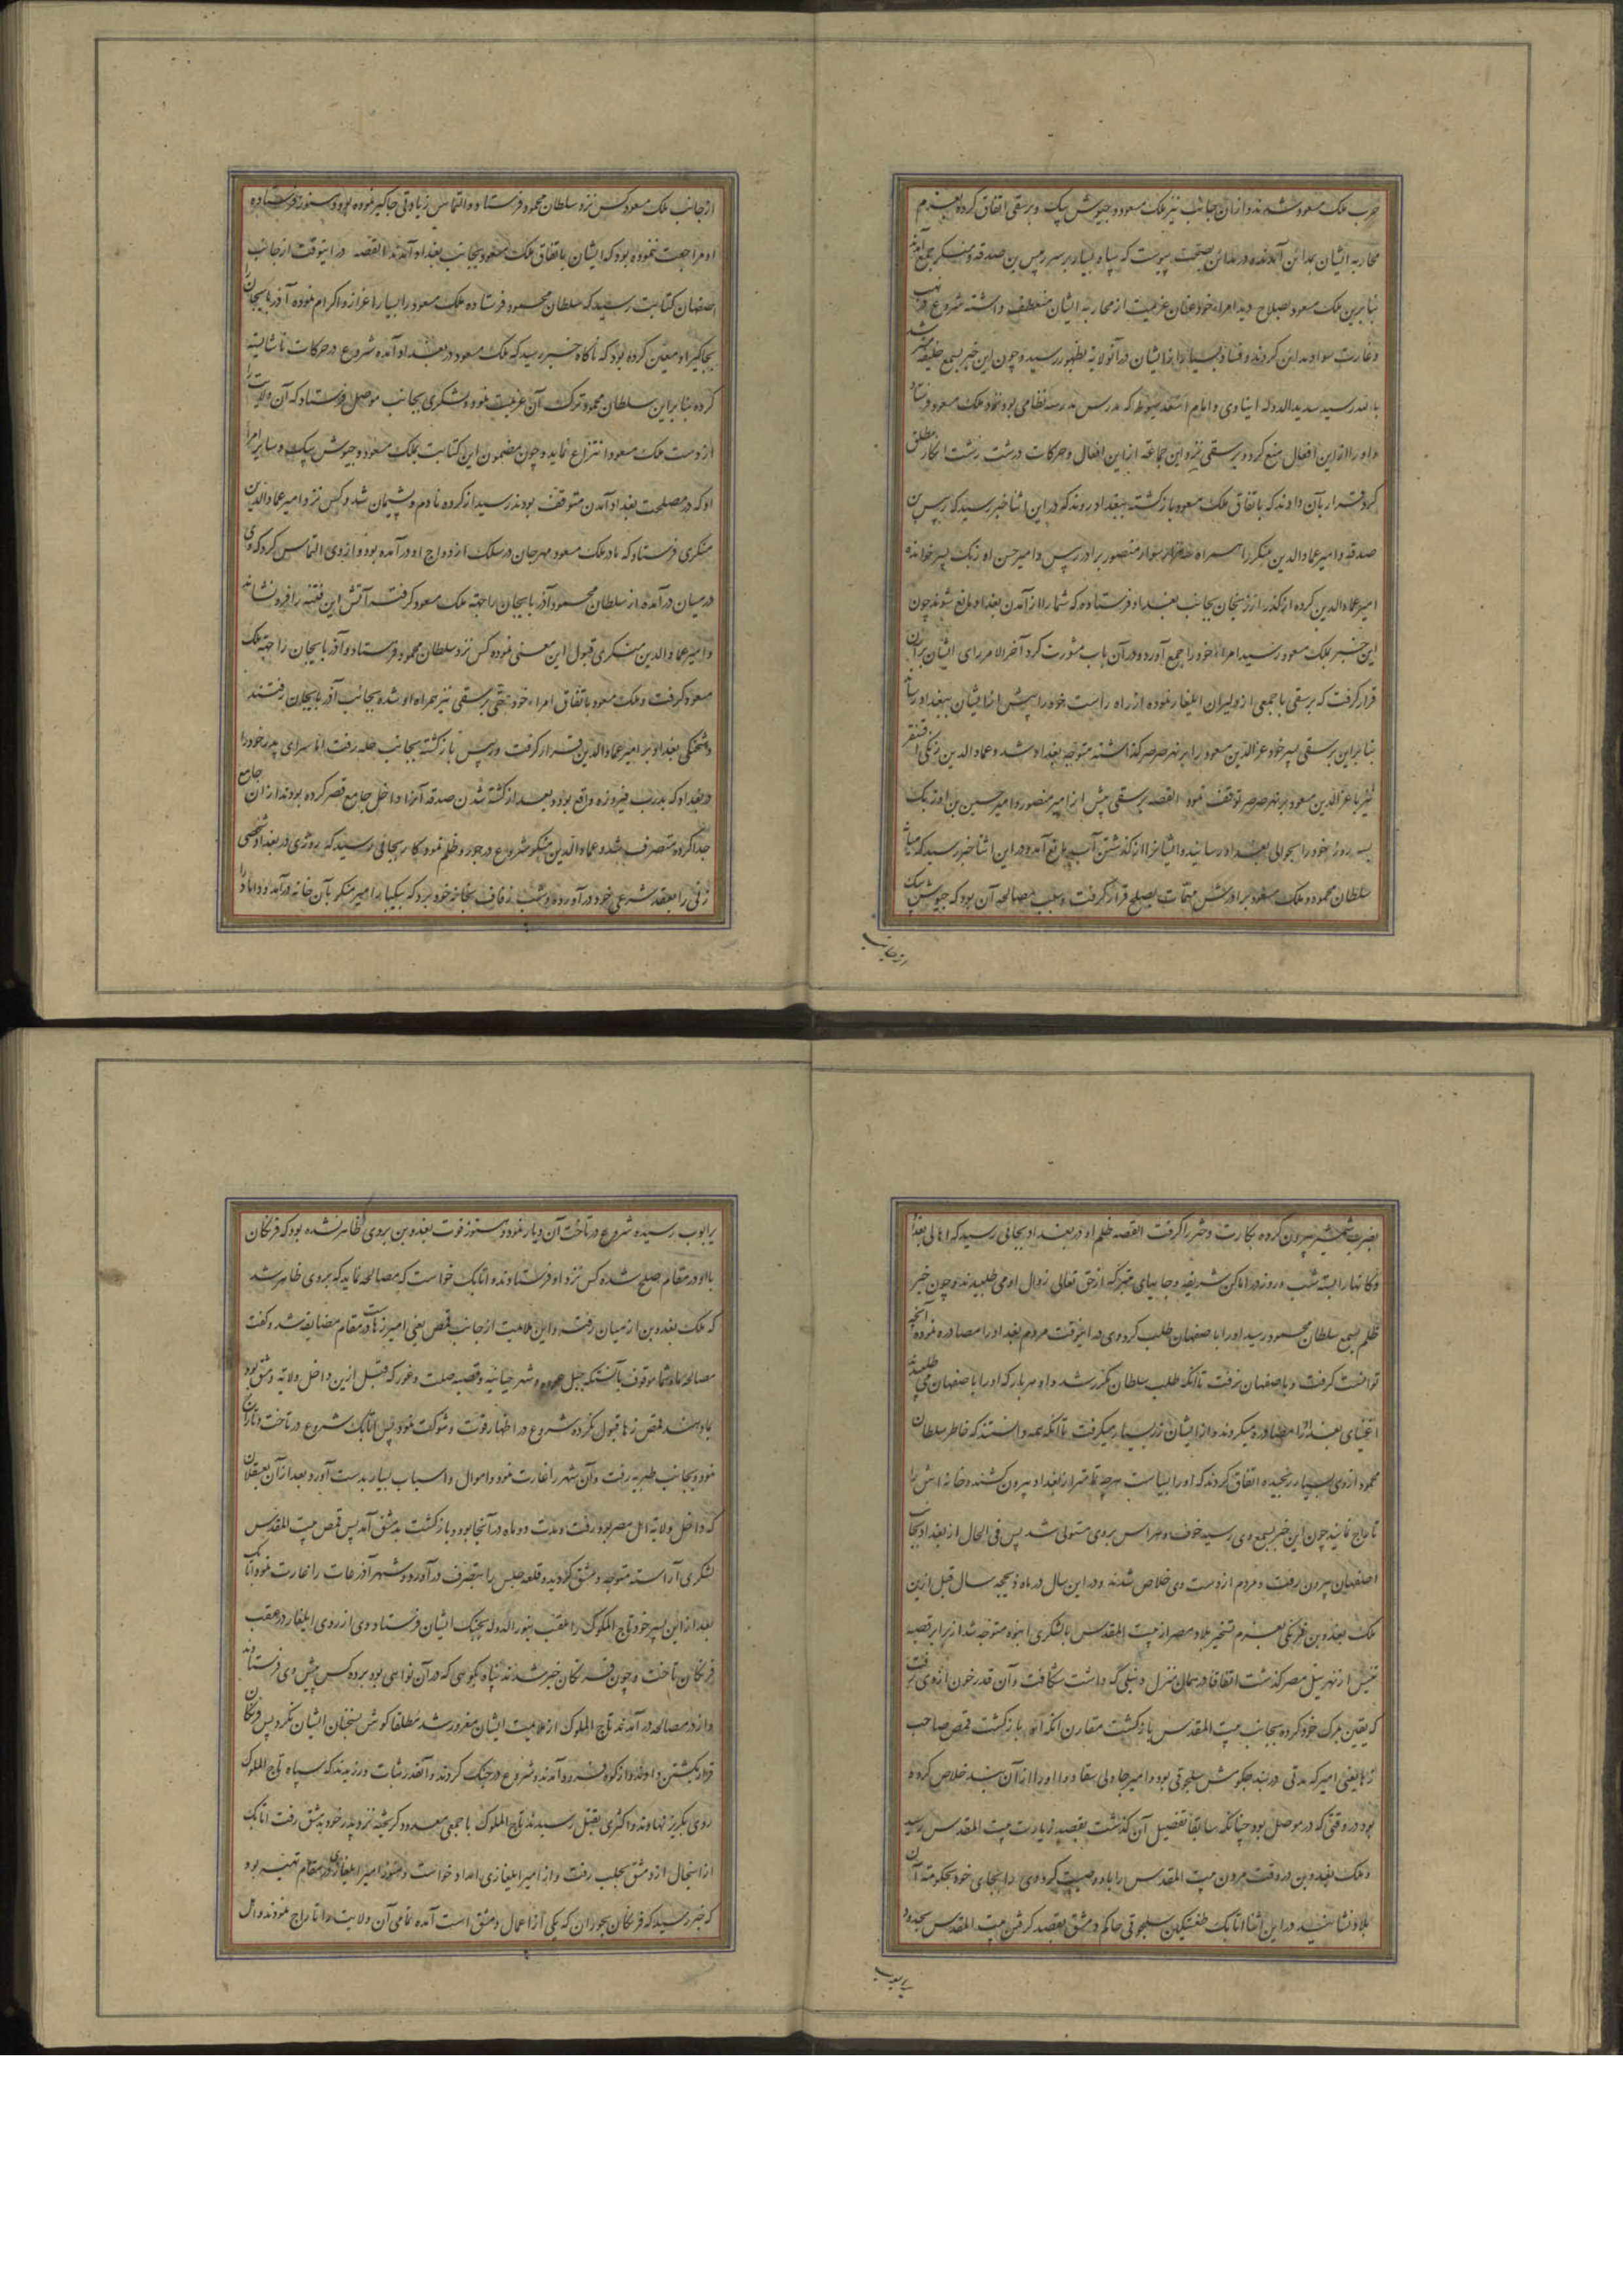 حرب ملک مسعود شدند و ازان جانب نیز ملک مسعود و جیوش بیک و برسقی اتفاق کرده بعزم
محاربه ایشان بمداین آمدند و در مداین بصحت پیوست که سپاه بسیار بر سر دبیس بن صدقه و منکر جمع آمده
بنابرین ملک مسعود بصلاح دید امراء خود عنان عزیمت از محاربه ایشان منعطف داشته شروع در نهب
و غارت سواد مداین کردند و فساد بسیار از ایشان در آنولایه بظهور رسید و چون این خبر بسمع خلیفه
رسید سدید الدوله ابناری و امام اسعد که مدرس مدرسه نظامی بود نزد ملک مسعود فرستاد
و او را ازین افعال منع کرد و برسقی نیز و این جماعه ازاین افعال و حرکات درشت زشت انکار مطلق
کرد قرار بآن دادند که باتفاق ملک مسعود بازگشته ببغداد روند که در این اثنا خبر رسید که دبیس بن
صدقه و امیر عماد الدین منکر را همراه سوار منصور برادر دبیس و امیر حسن اوزبک پسر خوانده
امیر عماد الدین کرده از گذر بجانب بغداد فرستاده که شما را از آمدن بغداد مانع شوند چون
این خبر بملک مسعود رسید امراء خود را جمع آورد و درآن باب مشورت کرد آخر الامر رای ایشان برآن
قرار گرفت که برسقی با جمعی از دلیران ایلغار نموده از راه راست خود را پیش از ایشان ببغداد رساند
بنابراین برسقی پسر خود عز الدین مسعود را بر نهر صرصر گذاشته متوجه بغداد شد و عماد الدین زنکی
نیز با عز الدین مسعود بر نهر صرصر توقف نمود القصه برسقی پیش از امیر منصور و امیر حسین بن اوزبک
بسه روز خود را بحوالی بغداد رسانید و ایشانرا از گذشتن آب مانع آمد و در این اثنا خبر رسید که میانه
سلطان محمود و ملک مسعود برادرش مهمات بصلح قرار گرفت و سبب مصالحه آن بود که جیوش بیک
از جانب
از جانب ملک مسعود کس نزد سلطان محمود فرستاده و التماس زیادتی جاگیر نموده بود و هنوز فرستاده
او مراجعت ننموده بود که ایشان باتفاق ملک مسعود بجانب بغداد آمدند القصه در اینوقت از جانب
اصفهان کتابت رسید که سلطان محمود فرستاده ملک مسعود را بسیار اعزاز و اکرام نموده آذربایجان را
بجاگیر او معین کرده بود که ناگاه خبر رسید که ملک مسعود در بغداد آمده شروع در حرکات ناشایسته
کرده بنابراین سلطان محمود ترک آن عزیمت نمود و لشکری بجانب موصل فرستاد که آن ولایت را
از دست ملک مسعود انتزاع نماید و چون مضمون این کتابت بملک مسعود و جیوش بیک و سایر امراء
او که در مصلحت بغداد آمدن متوقف بودند رسید از کرده نادم و پشیمان شد و کس نزد امیر عماد الدین
منکری فرستاد که مادر ملک مسعود مهرجان در سلک ازدواج او درآمده بود و از وی التماس کرد که وی
در میان درآمده از سلطان محمود آذربایجان را جهة ملک مسعود گرفته آتش این فتنه را فرو نشاند
و امیر عماد الدین منکری قبول این معنی نموده کس نزد سلطان محمود فرستاد و آذربایجان را جهة ملک
مسعود گرفت و ملک مسعود باتفاق امراء خود حتی برسقی نیز همراه او شده بجانب آذربایجان رفتند
و شحنگی بغداد بر امیر عماد الدین قرار گرفت و دبیس بازگشته بجانب حله رفت اما سرای پدر خود را
در بغداد که بدرب فیروزه واقع بود و بعد از کشته شدن صدقه آنرا داخل جامع قصر کرده بودند ازان جامع
جدا کرده متصرف شد و عماد الدین منکر شروع در جور و ظلم نمود کار بجائی رسید که روزی در بغداد شخصی
زنی را بعقد شرعی خود درآورده و شب زفاف بخانه خود برد که بیکبار امیر منکر بآن خانه درآمد و داماد را
بضرب شمشیر بیرون کرده بکارت دختر را گرفت القصه ظلم او در بغداد بجائی رسید که اهالی بغداد
دکانها را بسته شب و روز در اماکن شریفه و جاییای متبرکه از حق تعالی زوال او می طلبیدند و چون خبر
ظلم بسمع سلطان محمود رسید او را باصفهان طلب کرد و وی در اینوقت مردم بغداد را مصادره نموده آنچه
توانست گرفت و باصفهان نرفت تا آنکه طلب سلطان مکرر شد و او هر بار که او را باصفهان می طلبیدند
اغنیای بغداد را مصادره میکرد و از ایشان زر بسیار میگرفت تا آنکه همه دانستند که خاطر سلطان
محمود از وی بسیار رنجیده اتفاق کردند که او را بسیاست هرچه تمامتر از بغداد بیرون کشند و خانه اش را
تاراج نمایند چون این خبر بسمع وی رسید خوف و هراس بر وی مستولی شد پس فی الحال از بغداد بجانب
اصفهان بیرون رفت و مردم از دست وی خلاص شدند و در این سال در ماه ذیحجه سال قبل ازین
ملک بغدوین فرنگی بعزم تسخیر بلاد مصر از بیت المقدس با لشکری انبوه متوجه شد از برابر قصبه
تنیس از نهر نیل مصر گذشت اتفاقا در همان منزل دنبلی که داشت شکافت و آن قدر خون از وی رفت
که یقین مرک خود کرده بجانب بیت المقدس بازگشت مقارن آنکه او بازگشت قمص صاحب
رها یعنی امیر که مدتی در بند جکرمش سلجوقی بود و امیر جاولی سقاوا او را از آن بند خلاص کرده
بود در وقتی که در موصل بود چنانکه سابقا تفصیل آن گذشت بقصد زیارت بیت المقدس رسید
و ملک بغدوین در وقت مردن بیت المقدس را باو وصیت کرد و وی را بجای خود بحکومة آن
بلاد نشانید در این اثنا اتابک طغتکین سلجوقی حاکم دمشق بقصد گرفتن بیت المقدس بحدود
یرابوب
یرابوب رسیده شروع در تاخت آن دیار نمود و هنوز فوت بغدوین بر وی ظاهر نشده بود که فرنگان
با او در مقام صلح شده کس نزد او فرستادند و اتابک خواست که مصالحه نماید که بر وی ظاهر شد
که ملک بغدوین از میان رفته و این ملامیت از جانب قمص یعنی امیر رهاست در مقام مضایقه شد و گفت
مصالحه ما و شما موقوف بآنستکه جبل عوده و شهر حنانیه و قصبه صلت و غور که قبل ازین داخل ولایه دمشق بود
باو دهند قمص رها قبول نکرده شروع در اظهار قوت و شوکت نمود پس اتابک شروع در تاخت و تاراج
نمود و بجانب طبریه رفت و آن شهر را غارت نمود و اموال و اسباب بسیار بدست آورد و بعد از آن بعسقلان
که داخل ولایة اهل مصر بود رفت و مدت دو ماه در آنجا بود و بازگشت بدمشق آمد پس قمص بیت المقدس
لشکری آراسته متوجه دمشق گردید و قلعه جلیس را بتصرف درآورد و شهر آذرعات را غارت نمود و اتابک
بعد از این پسر خود تاج الملوک را ملقب بنور الدوله بجنگ ایشان فرستاد و وی از روی ایلغار در عقب
فرنگان تاخت و چون فرنگان خبر شدند پناه بکوهی که در آن نواحی بود برده کس پیش وی فرستادند
و از در مصالحه درآمدند تاج الملوک از ملامیت ایشان مغرور شد مطلقا گوش بسخنان ایشان نکرد پس فرنگان
قرار بکشتن داده و از کوه فرود آمدند و شروع در جنگ کردند و آنقدر ثبات ورزیدند که سپاه تاج الملوک
روی بگریز نهادند و اکثری بقتل رسیدند تاج الملوک با جمعی معدود گریخته نزد پدر خود بدمشق رفت اتابک
از اینحال از دمشق بحلب رفت و از امیر ایلغازی امداد خواست و هنوز امیر ایلغازی در مقام تهیه بود
که خبر رسید که فرنگان بحوران که یکی از اعمال دمشق است آمده تمامی آن ولایت را تاراج نمودند و ال